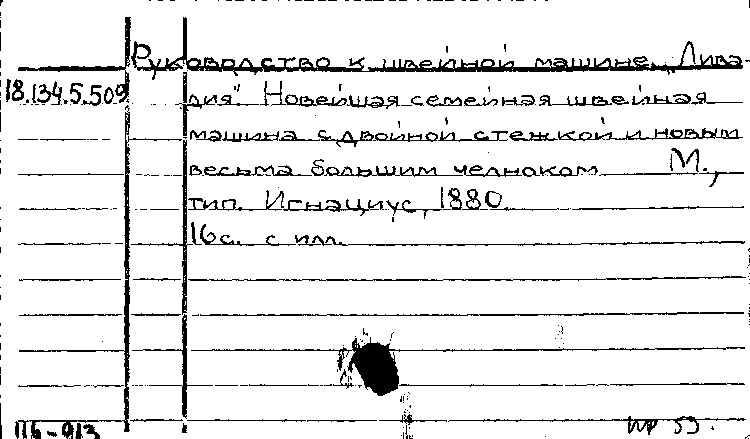 Руководство к швейной машине „Лива-
18.134.5.509 дия". Новейшая семейная швейная
машина с двойной стежкой и новым
весьма большим челноком М.,
тип. Игнациус, 1880.
16с. с илл.
116-913